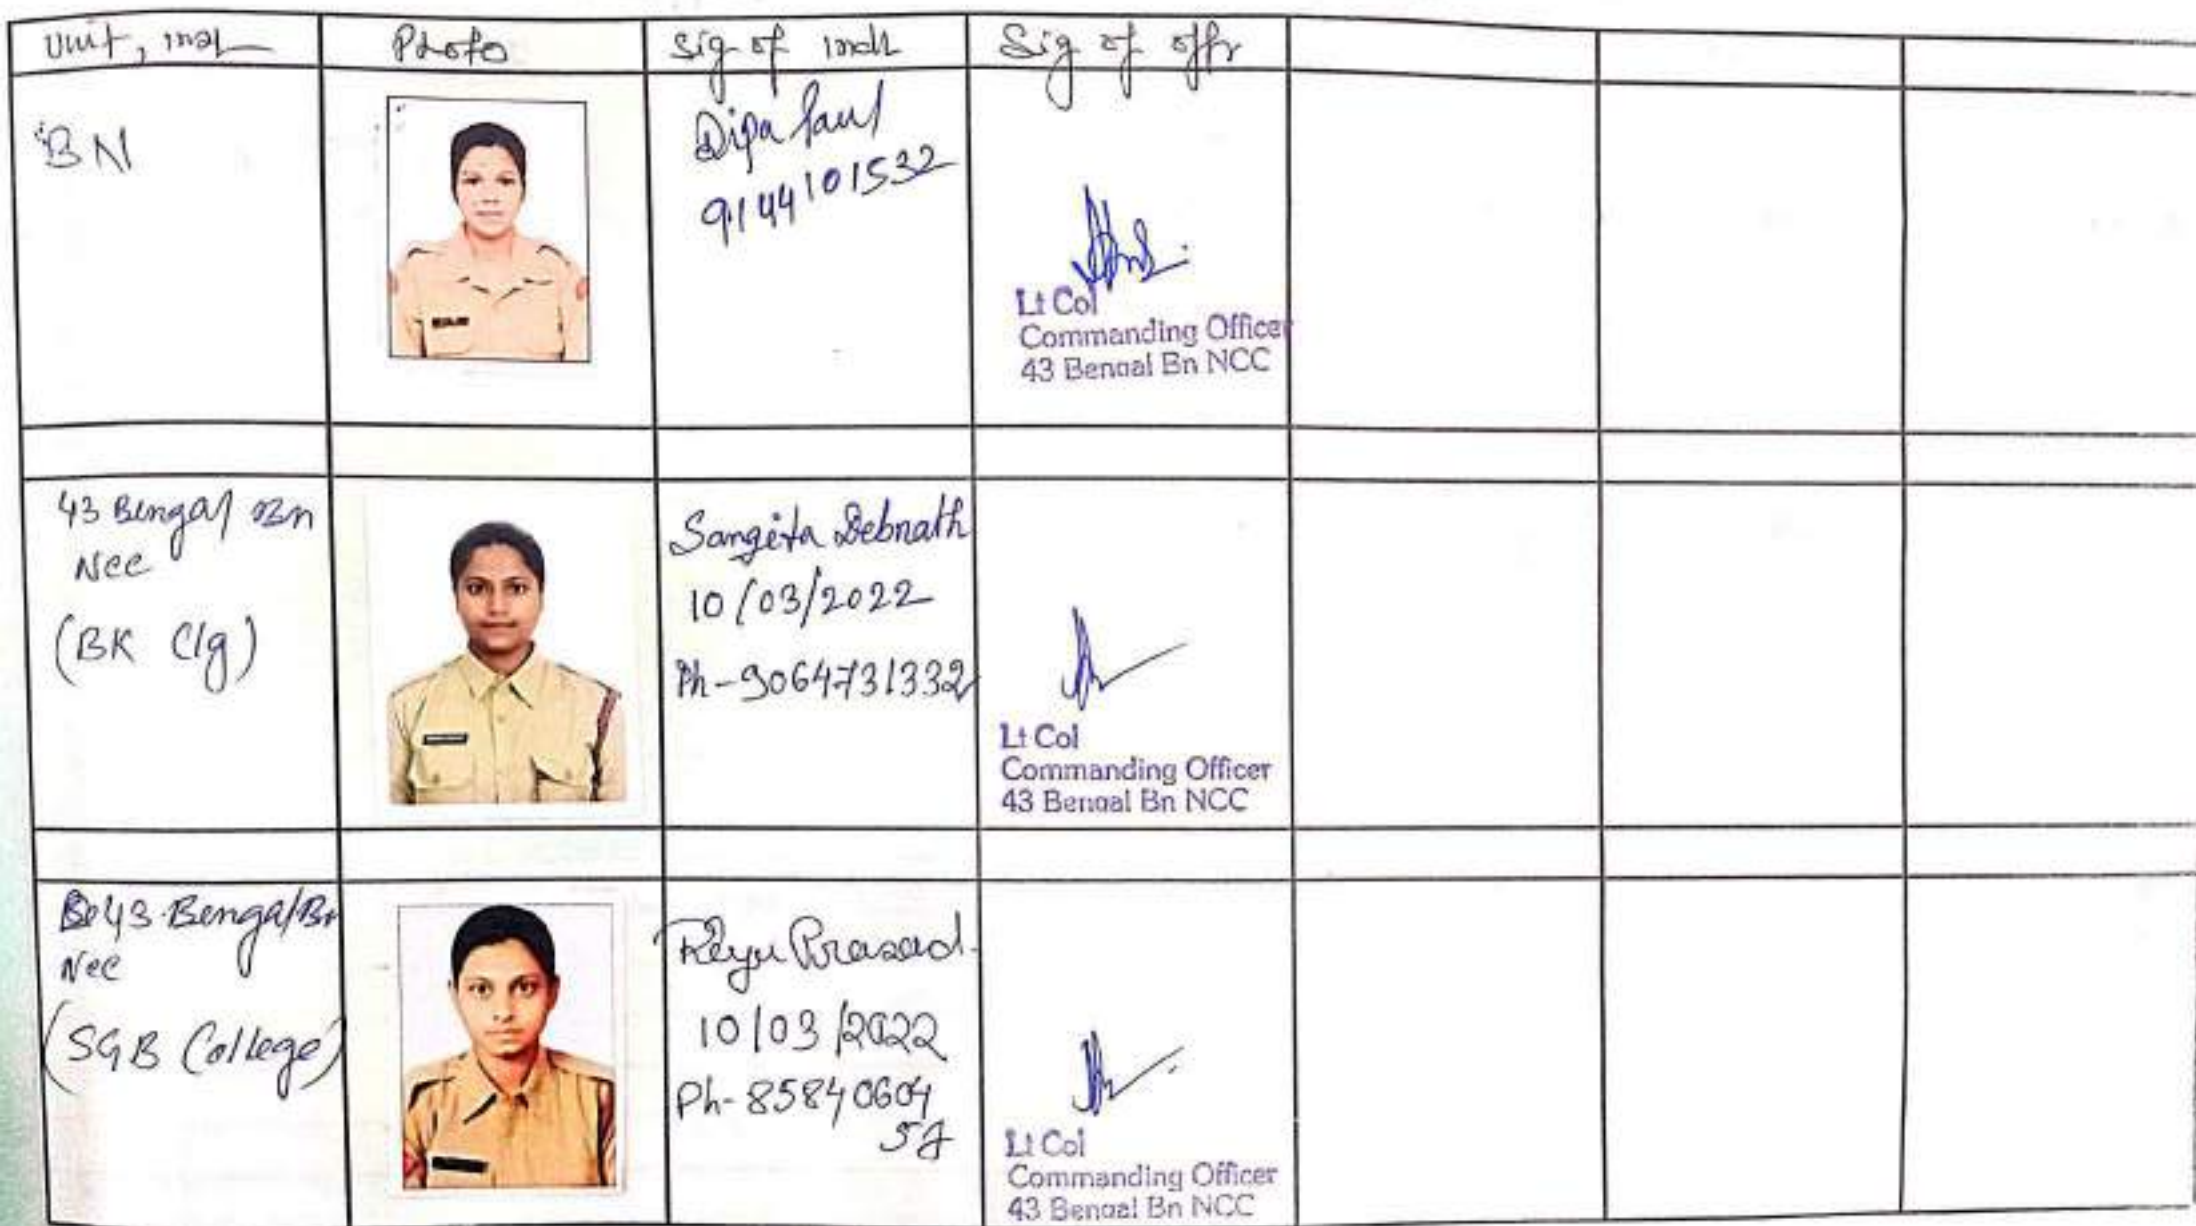 Unit, inst
Photo
Sig of indl
Sig of offr
BN
Dipa Paul
9144101532
Lt Col
Commanding Officer
43 Bengal Bn NCC
43 Bengal Bn
Ncc
(BK Clg)
Sangita Debnath
10/03/2022
Ph-9064731332
Lt Col
Commanding Officer
43 Bengal Bn NCC
43 Bengal Bn
Ncc
(SGB College)
Prasad
10/03/2022
Ph-85840604
57
Lt Col
Commanding Officer
43 Bengal Bn NCC